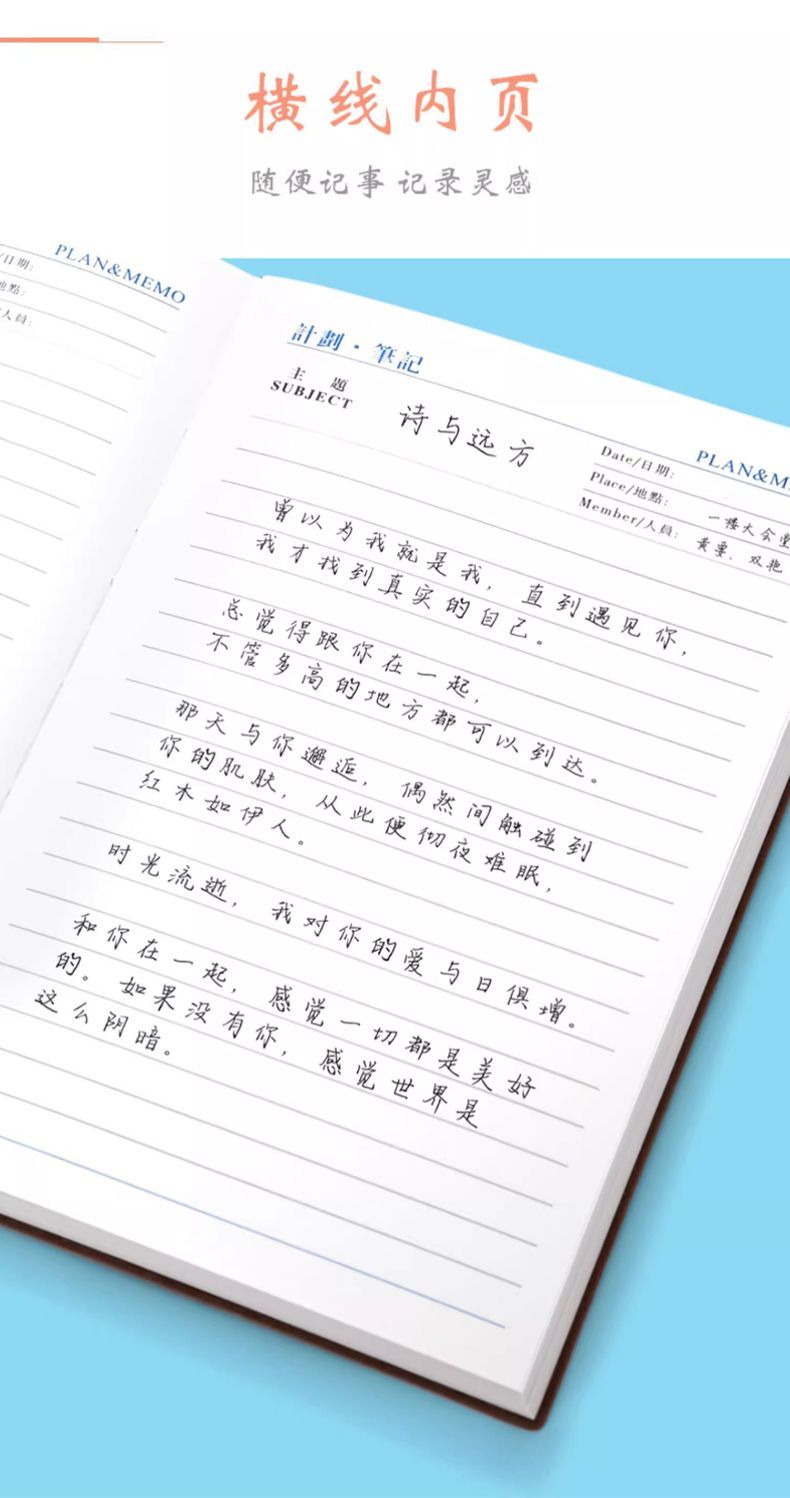 横线内页
随便记事 记录灵感
/日期:
PLAN&MEMO
地點:
人員:
計劃·筆記
主題
SUBJECT
诗与远方
PLAN&M
Date/日期:
Place/地點: 一楼大会堂
Member/人員: 黄雯、双艳
曾以为我就是我，直到遇见你，
我才找到真实的自己。
总觉得跟你在一起，
不管多高的地方都可以到达。
那天与你邂逅，偶然间触碰到
你的肌肤，从此便彻夜难眠，
红木如伊人。
时光流逝，我对你的爱与日俱增。
和你在一起，感觉一切都是美好
的。如果没有你，感觉世界是
这么阴暗。